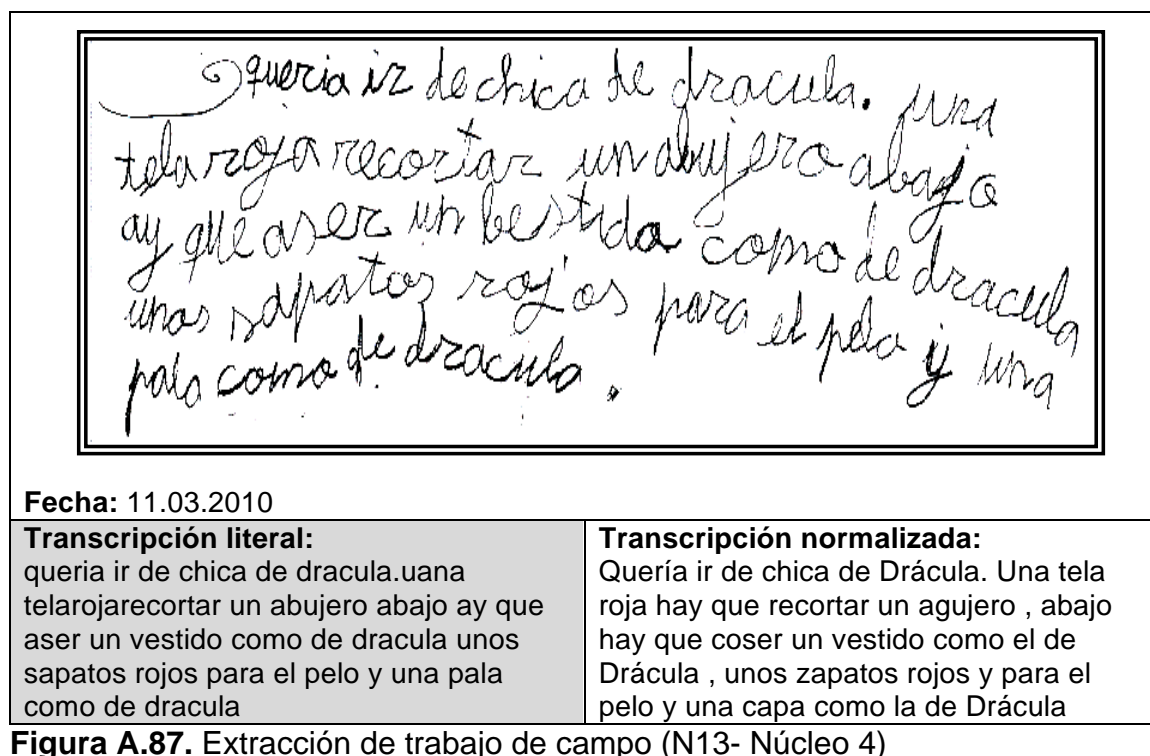 queria ir de chica de dracula. una
tela roja recortar un abujero abajo
ay que aser un bestido como de dracula
unos sapatos rojos para el pelo y una
pala como de dracula.
Fecha: 11.03.2010
Transcripción literal:
queria ir de chica de dracula.uana
telarojarecortar un abujero abajo ay que
aser un vestido como de dracula unos
sapatos rojos para el pelo y una pala
como de dracula
Transcripción normalizada:
Quería ir de chica de Drácula. Una tela
roja hay que recortar un agujero , abajo
hay que coser un vestido como el de
Drácula , unos zapatos rojos y para el
pelo y una capa como la de Drácula
Figura A.87. Extracción de trabajo de campo (N13- Núcleo 4)